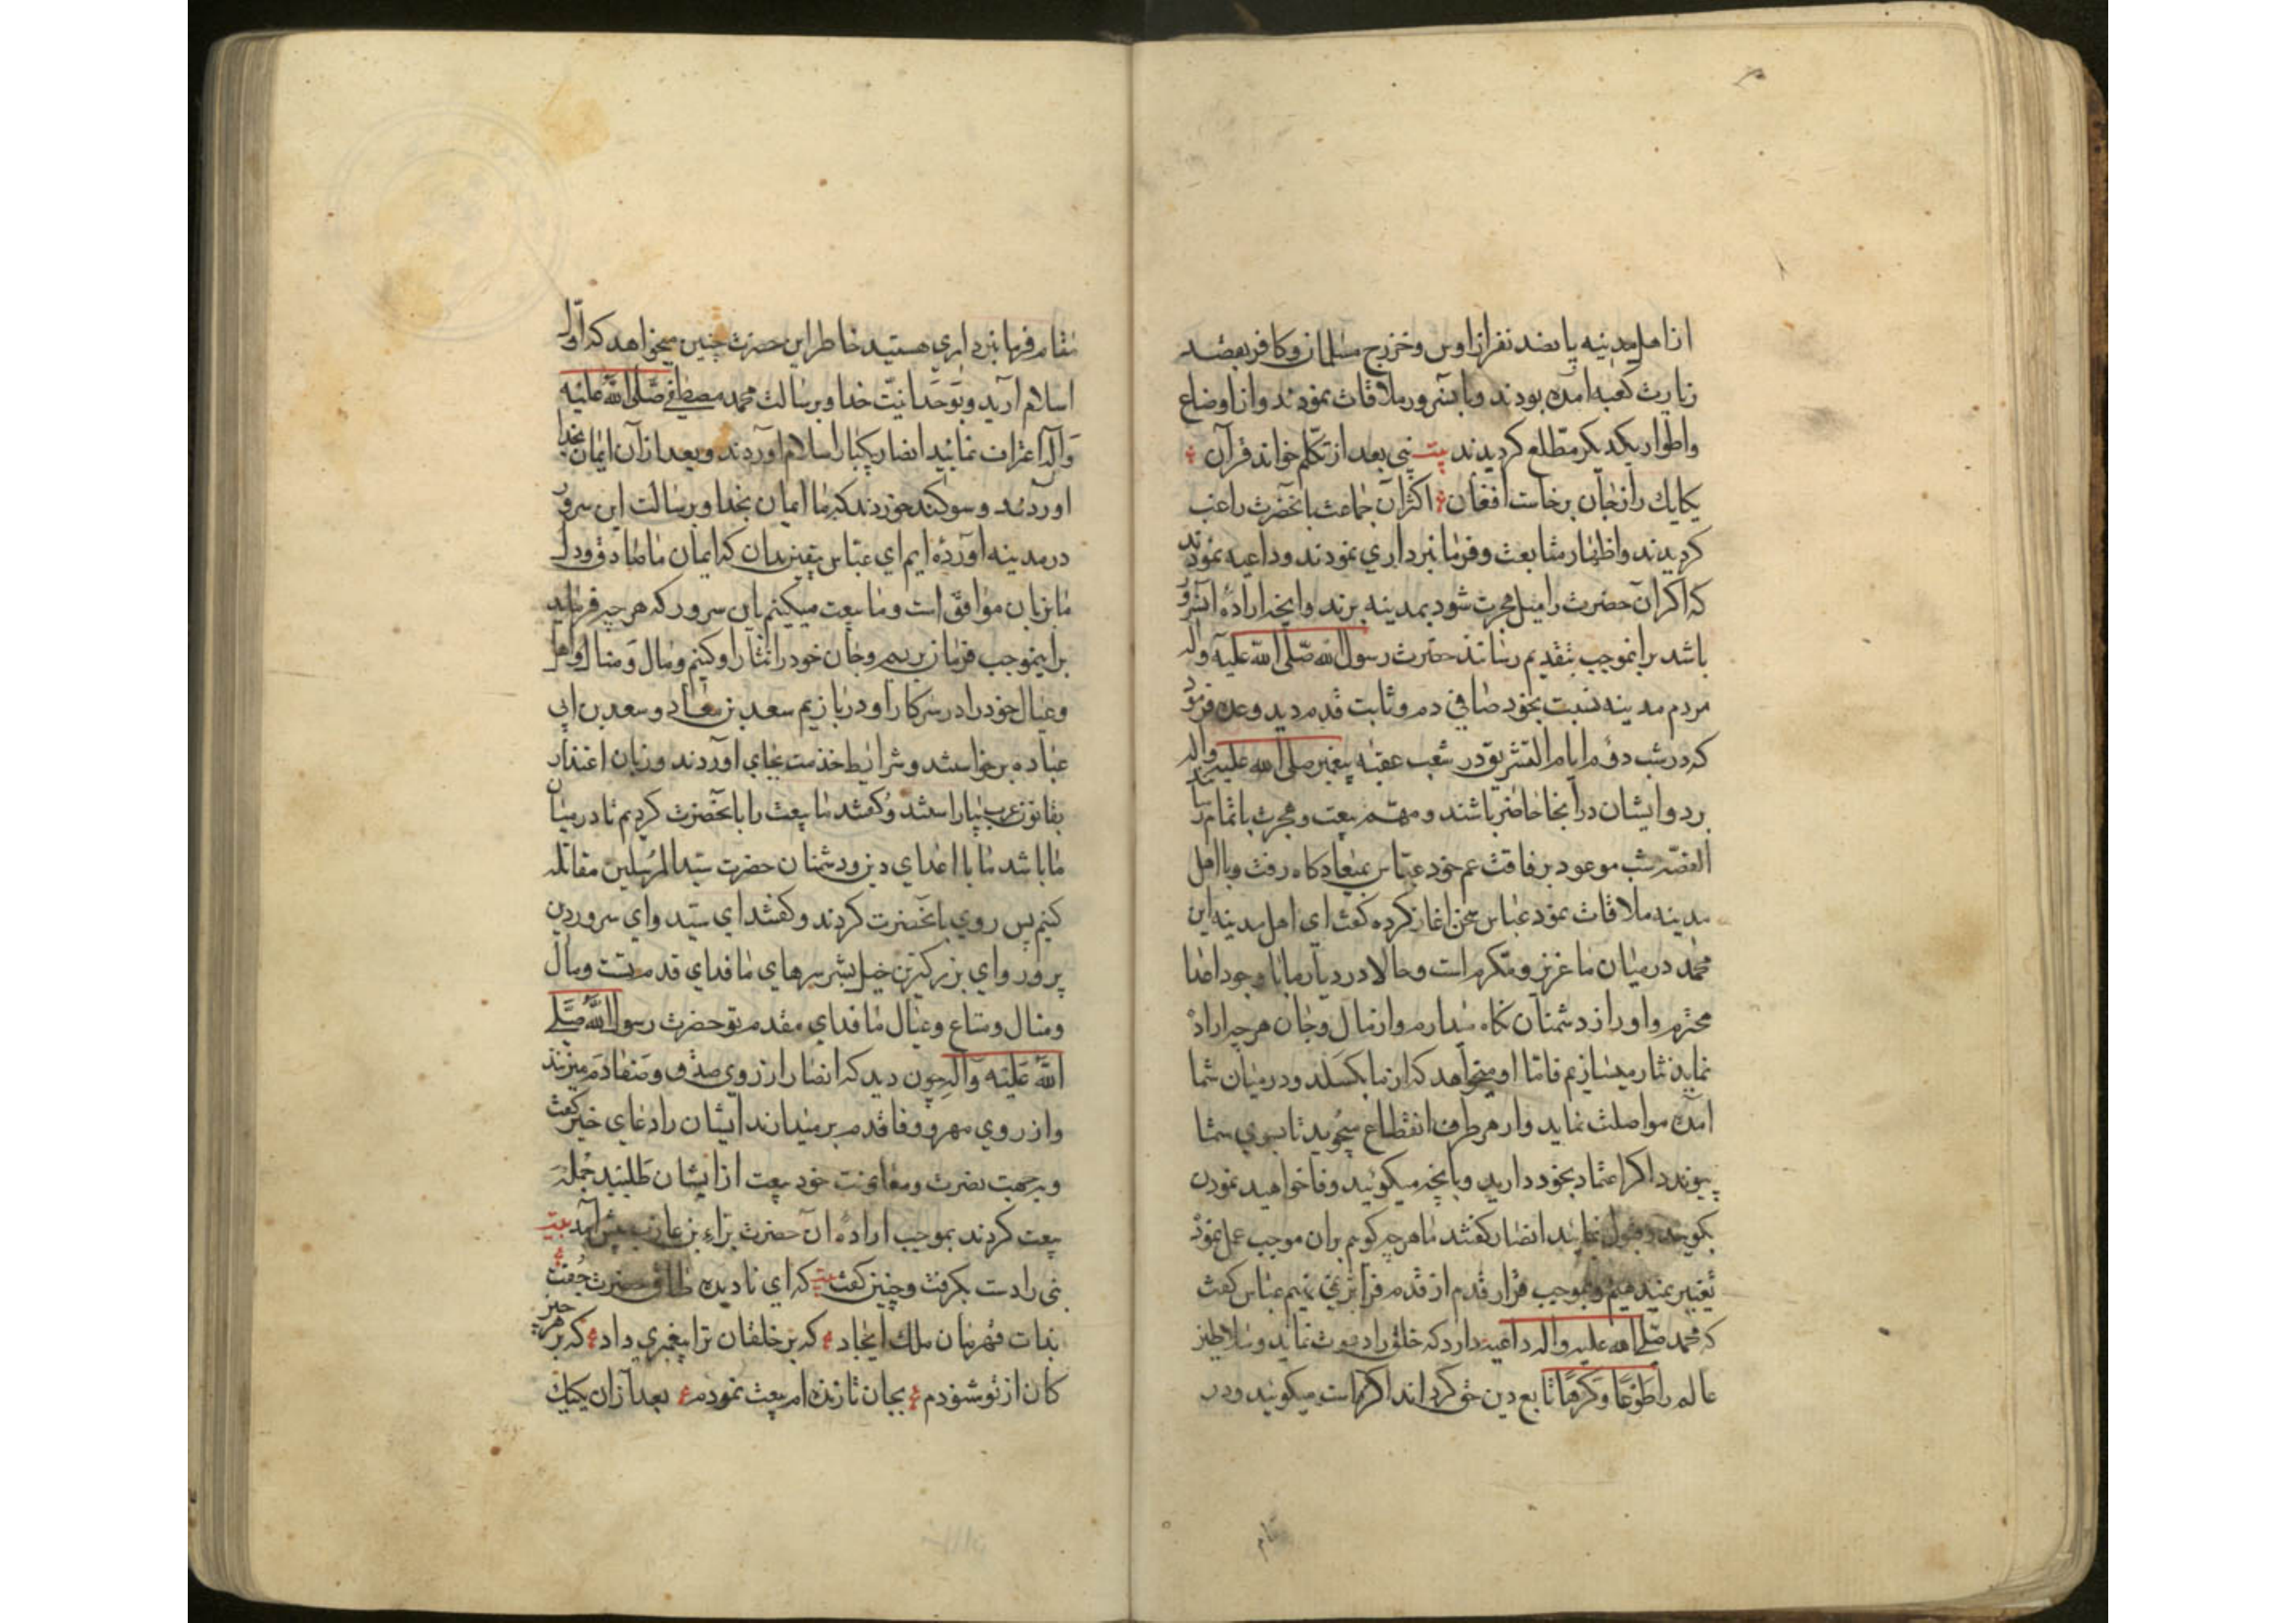 از اهل مدینه پانصد نفر از اوس و خزرج مسلمان و کافر بقصد
زیارت کعبه آمده بودند و با آنسرور ملاقات نمودند و از اوضاع
و اطوار یکدیکر مطّلع کردیدند بیت نبی بعد از تکلّم خواند قرآن
یکایک را ز جان برخاست افغان اکثر آن جماعت بانحضرت راغب
کردیدند و اظهار متابعت و فرمانبرداری نمودند و داعیه نمودند
که اکر آن حضرت را میل هجرت شود بمدینه برند و انچه ارادهٔ آنسرور
باشد برانموجب بتقدیم رسانند حضرت رسول الله صلّی الله علیه وآله
مردم مدینه نسبت بخود صافی دم و ثابت قدم دید وعده فرمود
که در شب دوم ایام التشریق در شعب عقبه پیغمبر صلی الله علیه وآله
برد و ایشان در آنجا حاضر باشند و مهمّ بیعت و هجرت باتمام رسانند
القصّه شب موعود برفاقت عم خود عبّاس بمیعادکاه رفت و با اهل
مدینه ملاقات نمود عباس سخن اغاز کرده کفت ای اهل مدینه این
محمّد در میان ما عزیز و مکرم است و حالا در دیار ما با وجود اعدا
محترم و او را از دشمنان نکاه میدارم و از مال و جان هر چه اراده
نماید نثار میسازیم فامّا او میخواهد که از ما بکسلد و در میان شما
آمده مواصلت نماید و از هر طرف انقطاع میجوید تا بسوی شما
پیوندد اکر اعتماد بخود دارید و بانچه میکوئید وفا خواهید نمودن
بکویید و قبول نمایید انصار کفتند ما هر چه کویم بران موجب عمل نموده
تغییر نمیدهیم و بموجب قرار قدم از قدم فراتر نمی نهیم عباس کفت
که محمد صلّی الله علیه وآله داعیه دارد که خلق را دعوت نماید و سلاطین
عالم را طَوْعًا وَکَرْهًا تابع دین حق کرداند اکر راست میکوئید و در
تمام
مقام فرمانبرداری هستید خاطر این حضرت چنین میخواهد که اوّل
اسلام آرید و بوَحدانیّت خدا و برسالت محمد مصطفی صَلَّی اللهُ عَلَیْه
وَآلِه اعتراف نمائید انصار یکبار اسلام آوردند و بعد از آن ایمان بخدا
آوردند و سوکند خوردند که ما ایمان بخدا و برسالت این سرور
در مدینه آورده ایم ای عبّاس یقین بدان که ایمان ما صادق و دل
ما بزبان موافق است و ما بیعت میکنیم باین سرور که هر چه فرماید
براینموجب فرمان بریم و جان خود را نثار او کنیم و مال و منال و اهل
و عیال خود را در سرکار او دربازیم سعد بن معاذ و سعد بن ابی
عباده برخواستند و شرایط خذمت بجای آوردند و زبان اعتذار
بقانون عرب بیاراستند و کفتند ما بیعت را بانحضرت کردیم تا در میان
ما باشد ما با اعدای دین و دشمنان حضرت سیّد المرسلین مقاتله
کنیم پس روی بانحضرت کردند و کفتند ای سیّد و ای سرور دین
پرور و ای بزرکترین خیل بشر سرهای ما فدای قدم تست و مال
و منال و متاع و عیال ما فدای مقدم تو حضرت رسول اللهُ صَلَّی
اللهُ عَلَیْه وَآلِه چون دید که انصار از روی صدق و صفا دَم میزنند
و از روی مهر و وفا قدم بر میدارند ایشان را دعای خیر کفت
و بجهت نصرت و معاونت خود بیعت از ایشان طلبید جمله
بیعت کردند بموجب ارادهٔ آن حضرت براء بن عازب پیش آمد بیت
نبی را دست بکرفت و چنین کفت بیت که ای نادیده طاق حضرتت جفت
بذات قهرمان ملک ایجاد که بر خلقان ترا پیغمبری داد که بر هر چیز
کان از تو شنودم بجان تا زنده ام بیعت نمودم بعد از آن یکیک